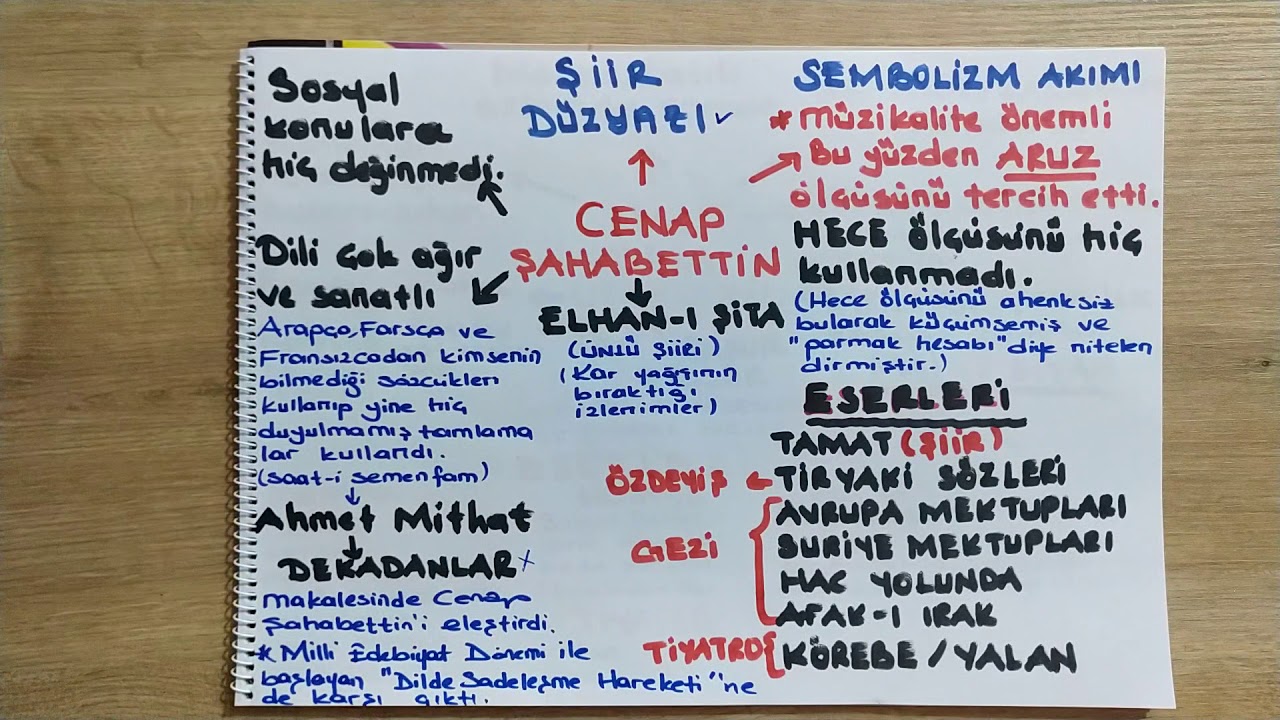 Sosyal
konulara
hiç değinmedi.
Dili çok ağır
ve sanatlı
Arapça, Farsça ve
Fransızcadan kimsenin
bilmediği sözcükleri
kullanıp yine hiç
duyulmamış tamlama
lar kullandı.
(saat-i semenfam)
Ahmet Mithat
DEKADANLAR
makalesinde Cenap
Şahabettin'i eleştirdi.
* Milli Edebiyat Dönemi ile
başlayan "Dilde Sadeleşme Hareketi"ne
de karşı çıktı.
ŞİİR
DÜZYAZI
CENAP
ŞAHABETTİN
ELHAN-I ŞİTA
(ÜNLÜ ŞİİRİ)
(Kar yağışının
bıraktığı
izlenimler)
SEMBOLİZM AKIMI
* Müzikalite önemli
Bu yüzden ARUZ
ölçüsünü tercih etti.
HECE ölçüsünü hiç
kullanmadı.
(Hece ölçüsünü ahenksiz
bularak küçümsemiş ve
"parmak hesabı" diye nitelen
dirmiştir.)
ESERLERİ
TAMAT (ŞİİR)
ÖZDEYİŞ ← TİRYAKİ SÖZLERİ
AVRUPA MEKTUPLARI
GEZİ SURİYE MEKTUPLARI
HAC YOLUNDA
AFAK-I IRAK
TİYATRO { KÖREBE / YALAN